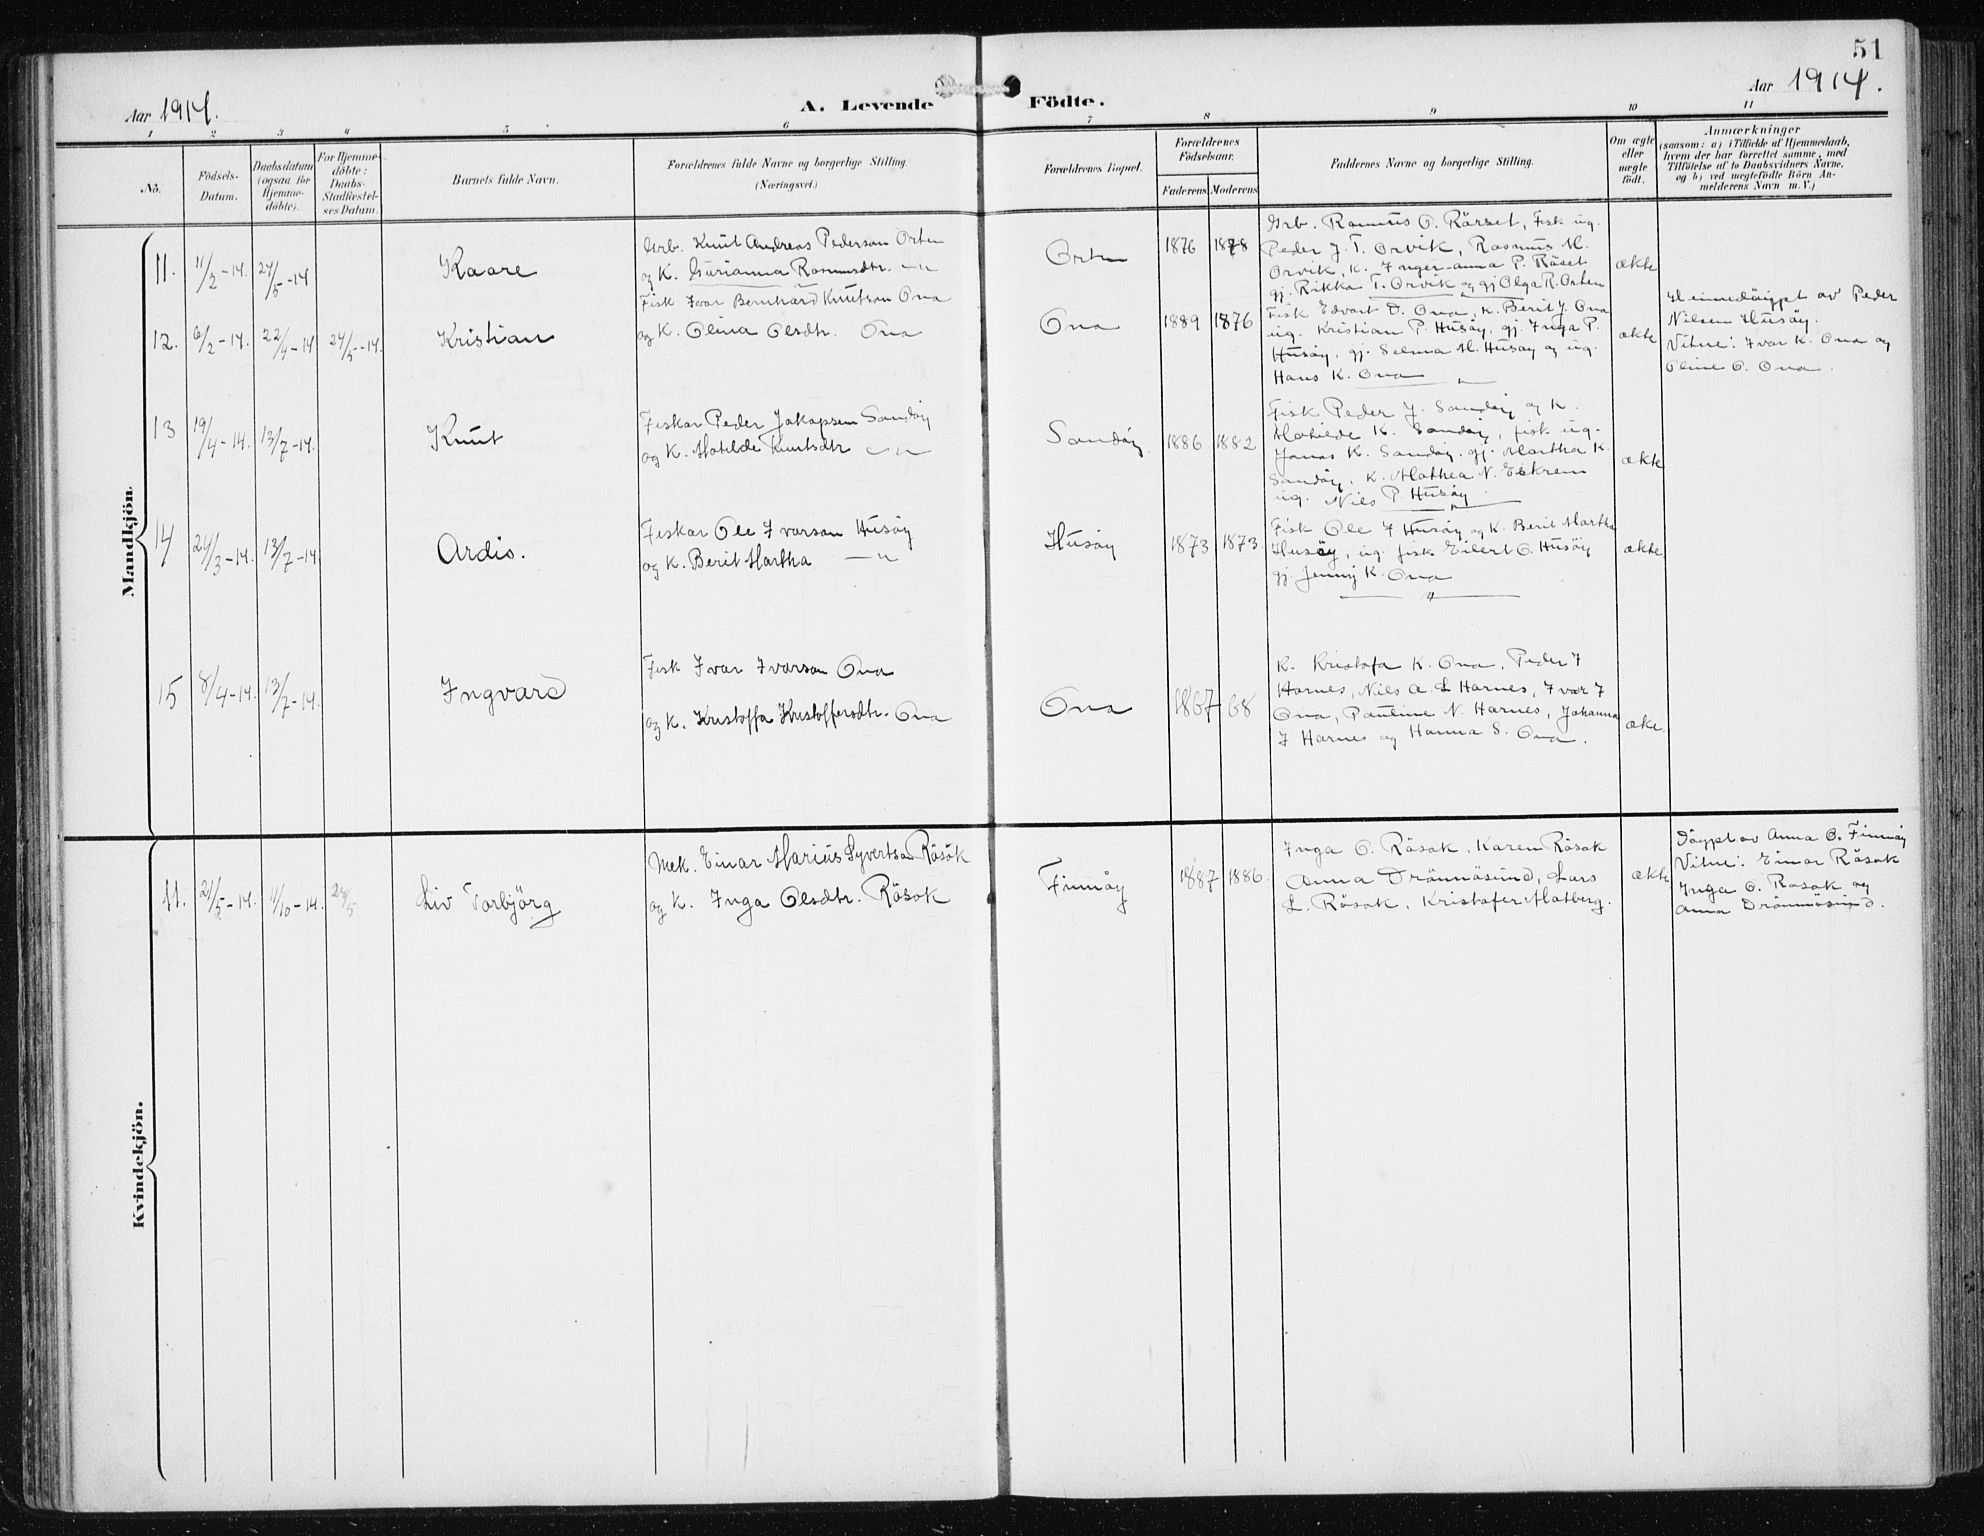 51
Aar 1914.
A. Levende Födte.
Aar 1914.
1 2 3 4 5 6 7 8 9 10 11
No.
Födsels-
Datum.
Daabsdatum
(ogsaa for
Hjemme-
döbte).
For Hjemme-
döbte:
Daabs-
Stadfæstel-
ses Datum.
Barnets fulde Navn.
Forældrenes fulde Navne og borgerlige Stilling.
(Næringsvei.)
Forældrenes Bopæl.
Forældrenes
Födselsaar.
Faderens Moderens
Faddernes Navne og borgerlige Stilling.
Om ægte
eller
uægte
födt.
Anmærkninger
(saasom: a) i Tilfælde af Hjemmedaab,
hvem der har forrettet samme, med
Tilföielse af to Daabsvidners Navne.
og b) ved uægtefödte Börn An-
melderens Navn m. V.)
Mandkjön.
11.
11/2-14.
24/5-14
Kaare
Grb. Knut Andreas Pederson Orten
og K. Gurianna Rasmusdtr. —"—
Orten
1876 1878
Grb. Rasmus O. Rörset, Fisk ug.
Peder J. T. Orvik, Rasmus M.
Orvik, K. Inger-anna P. Röset
gj. Rikka T. Orvik og gj Olga R. Orten
ækte
12.
6/2-14.
22/4-14
24/5-14.
Kristian
Fisk Ivar Bernhard Knutson Ona
og K. Olina Olsdtr. Ona
Ona
1889 1876
Fisk Edvart D. Ona, K. Berit J. Ona
ug. Kristian P. Husöy, gj. Inga P.
Husöy, gj. Selma M. Husöy og ug.
Hans K. Ona
ækte
Heimedöypt av Peder
Nilsen Husöy.
Vitne: Ivar K. Ona og
Oline O. Ona.
13
19/4-14.
13/7-14.
Knut
Fiskar Peder Jakopsen Sandöy
og K. Matilde Knutsdtr —"—
Sandöy.
1886 1882
Fisk Peder J. Sandöy og K.
Matilde K. Sandöy, fisk ug.
Jonas K. Sandöy. gj. Martha K.
Sandöy, K. Mathea N. Eekrem
ug. Niels P. Husöy.
ækte
14
24/3-14.
13/7-14.
Ardis.
Fiskar Ole Ivarson Husöy
og K. Berit Martha —"—
Husöy
1873 1873
Fisk Ole I Husöy og K. Berit Martha
Husöy, ug. fisk Eilert O. Husöy
gj. Jenny K. Ona
ækte
15
8/4-14.
13/7-14.
Ingvard
Fisk Ivar Ivarson Ona
og K. Kristoffa Kristoffersdtr. Ona
Ona
1867 68
K. Kristofa K. Ona, Peder I
Harnes, Nils A. L Harnes, Ivar I
Ona, Pauline N. Harnes, Johanna
I Harnes og Hanna S. Ona.
ække.
Kvindekjön.
11.
21/5-14.
11/10-14.
24/5
Liv Torbjörg
Mek. Einar Marius Syvertsen Rösok
og K. Inga Olsdtr. Rösok
Finnöy
1887 1886.
Inga O. Rösok, Karen Rösok
Anna Drönnäsund, Lars
L. Rösok, Kristofer Matberg.
ækte
Döypt av Anna B. Finnöy
Vitne: Einar Rösok
Inga O. Rosok og
Anna Drönnäsund.